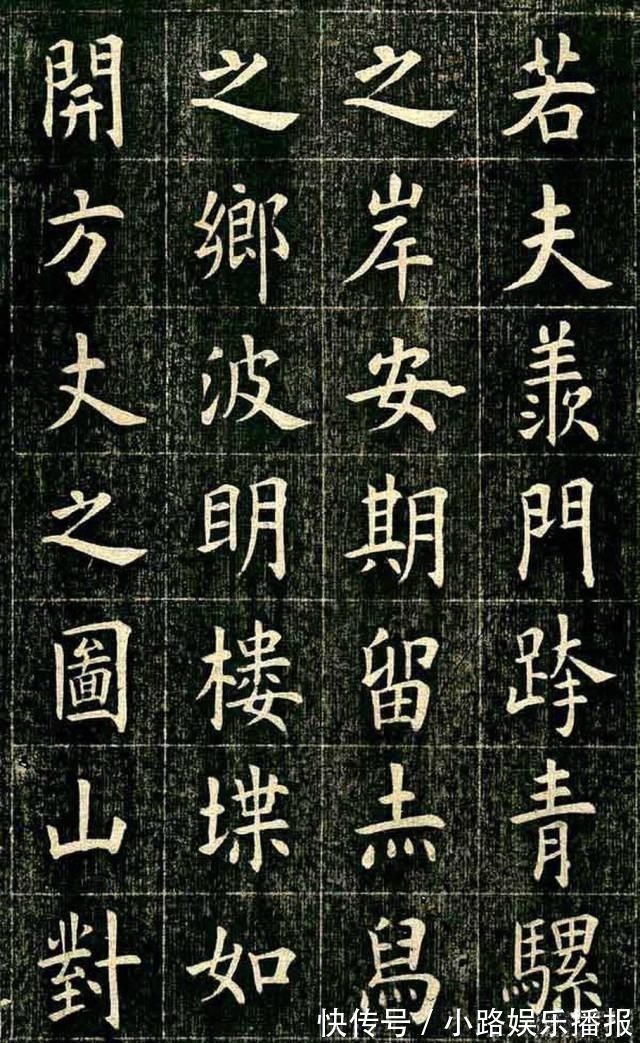 若夫羨門跨青騾
之岸安期留赤舄
之鄉波眀樓堞如
開方丈之圖山對
快传号 / 小路娱乐播报